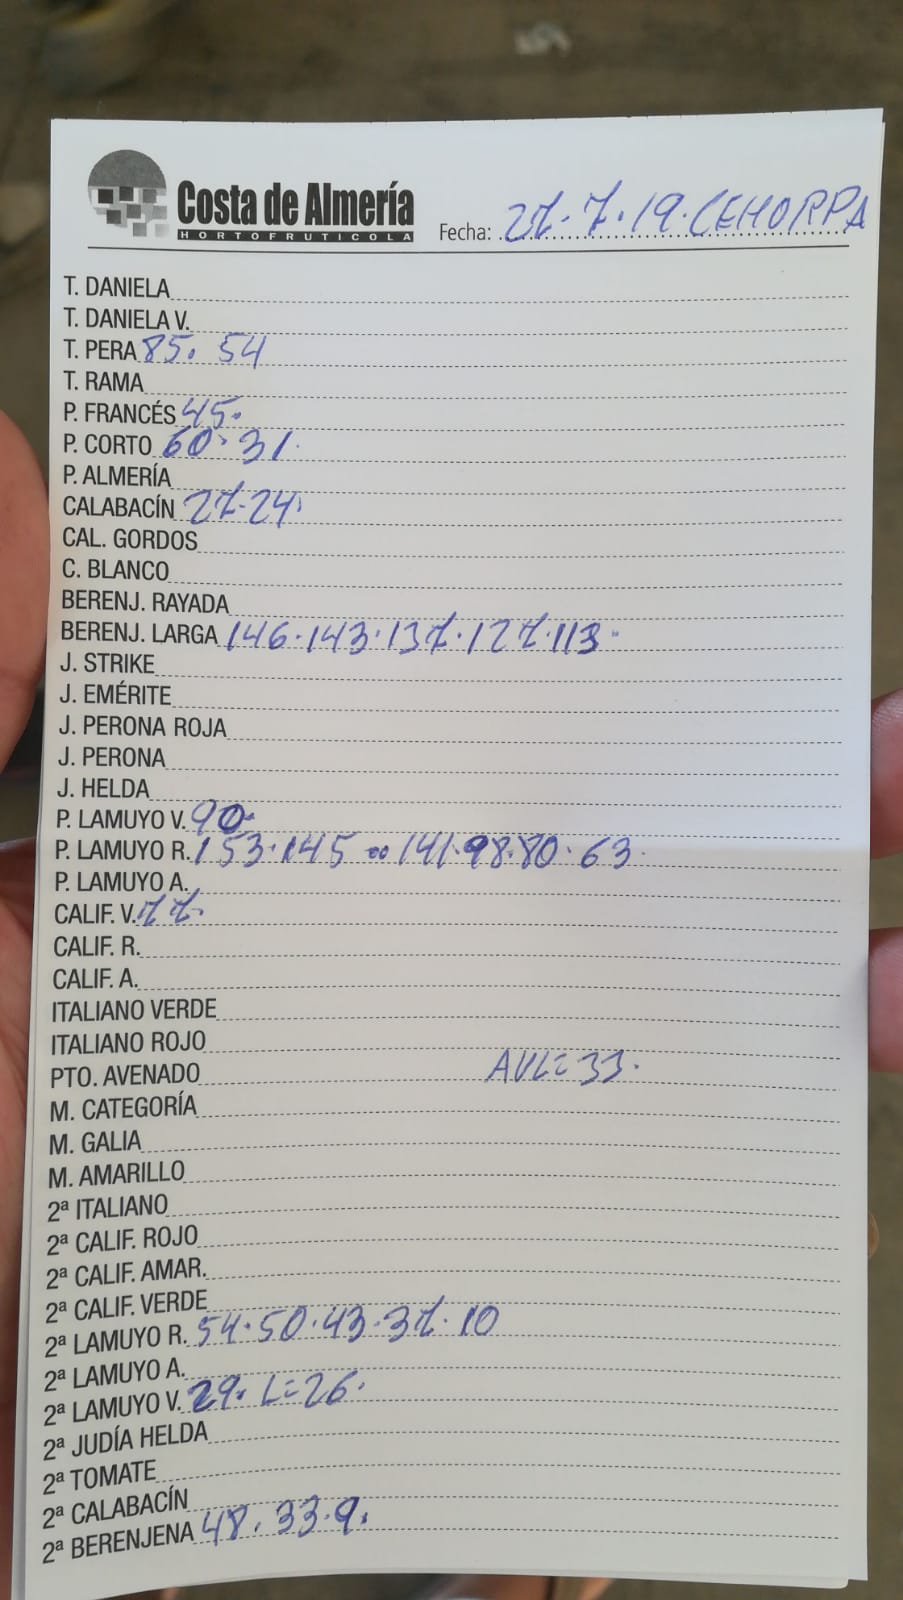 Costa de Almería
HORTOFRUTICOLA
Fecha: 27.7.19. CEHORPA
T. DANIELA
T. DANIELA V.
T. PERA 85. 54
T. RAMA
P. FRANCÉS 45.
P. CORTO 60. 31.
P. ALMERÍA
CALABACÍN 27.24.
CAL. GORDOS
C. BLANCO
BERENJ. RAYADA
BERENJ. LARGA 146.143.137.127.113
J. STRIKE
J. EMÉRITE
J. PERONA ROJA
J. PERONA
J. HELDA
P. LAMUYO V. 90.
P. LAMUYO R. 153.145 141.98.80.63.
P. LAMUYO A.
CALIF. V. 77.
CALIF. R.
CALIF. A.
ITALIANO VERDE
ITALIANO ROJO
PTO. AVENADO AVL=33.
M. CATEGORÍA
M. GALIA
M. AMARILLO
2ª ITALIANO
2ª CALIF. ROJO
2ª CALIF. AMAR.
2ª CALIF. VERDE
2ª LAMUYO R. 54.50.43.37.10
2ª LAMUYO A.
2ª LAMUYO V. 29. L=26.
2ª JUDÍA HELDA
2ª TOMATE
2ª CALABACÍN
2ª BERENJENA 48.33.9.